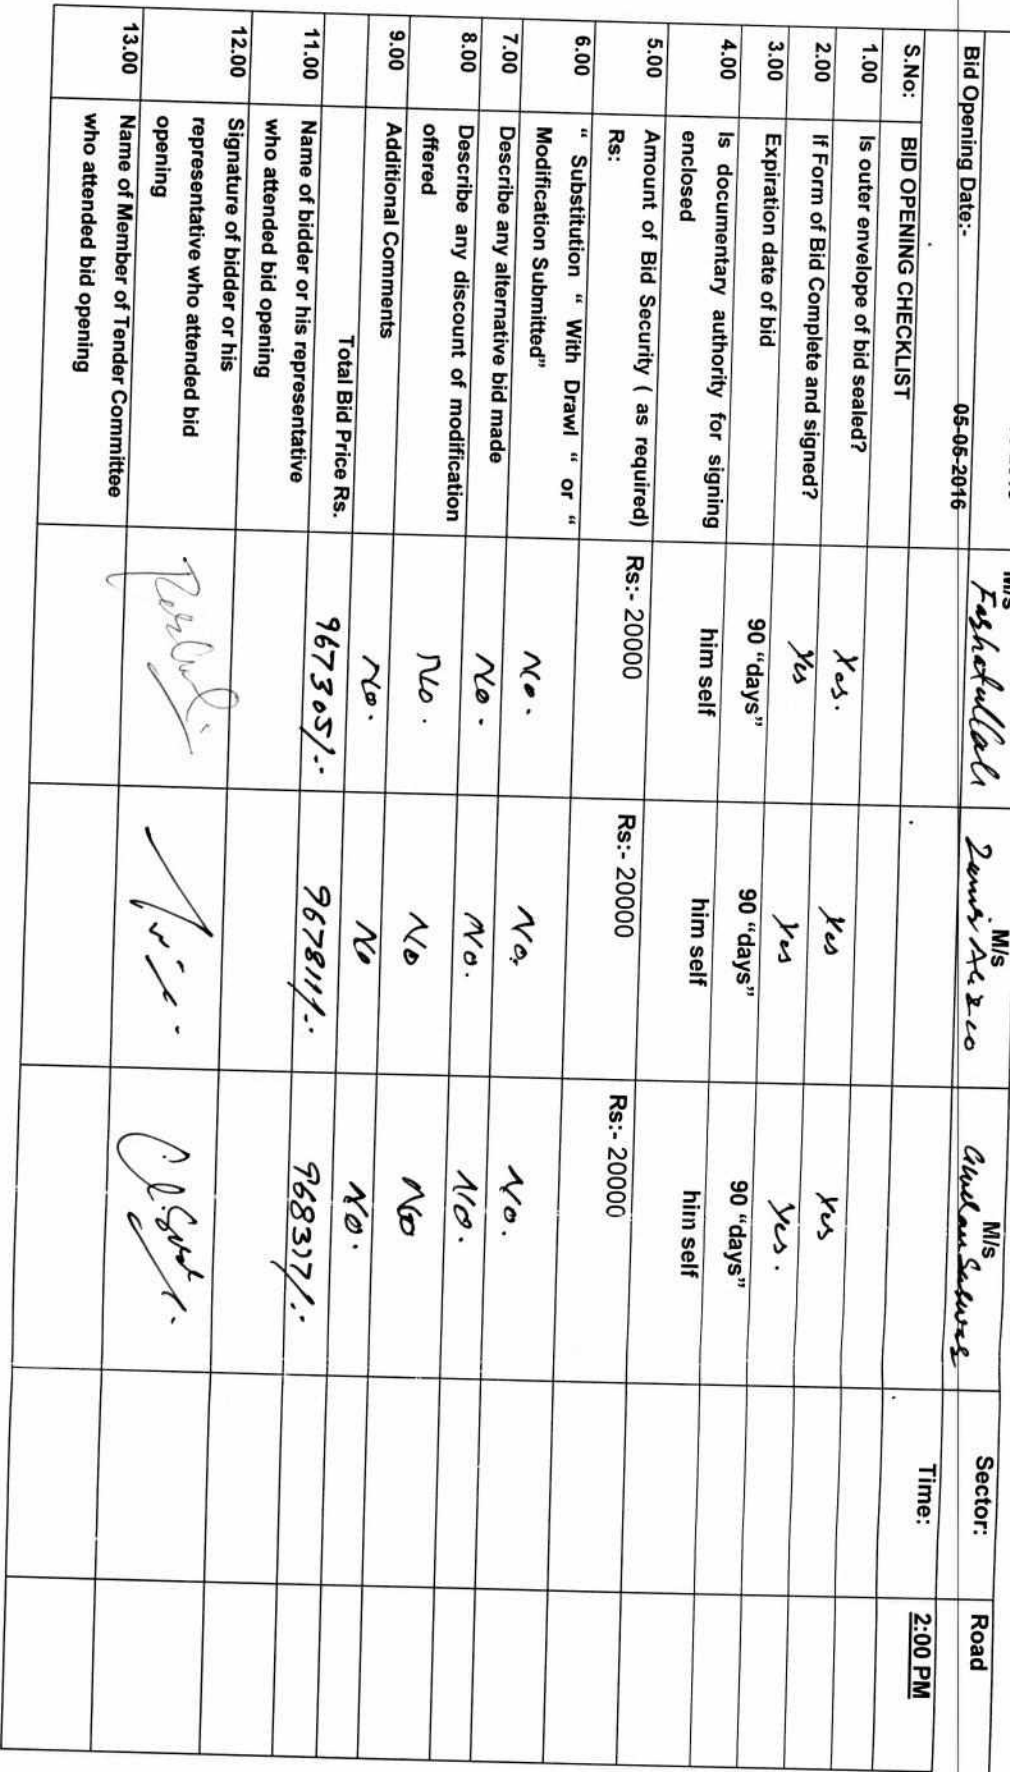 M/s M/s M/s Sector: Road
Bid Opening Date:- 05-05-2016 Fashatullah Zamir Ali & co Ghulam Sarwar
S.No: BID OPENING CHECKLIST Time: 2:00 PM
1.00 Is outer envelope of bid sealed? Yes. Yes Yes
2.00 If Form of Bid Complete and signed? Yes Yes Yes.
3.00 Expiration date of bid 90 “days” 90 “days” 90 “days”
4.00 Is documentary authority for signing him self him self him self
enclosed
5.00 Amount of Bid Security ( as required) Rs:- 20000 Rs:- 20000 Rs:- 20000
Rs:
6.00 “ Substitution “ With Drawl “ or “
Modification Submitted” No. No. No.
7.00 Describe any alternative bid made No. No. No.
8.00 Describe any discount of modification No. No No
offered
9.00 Additional Comments No. No No.
Total Bid Price Rs. 967305/- 967811/- 968377/-
11.00 Name of bidder or his representative
who attended bid opening
12.00 Signature of bidder or his
representative who attended bid
opening
13.00 Name of Member of Tender Committee
who attended bid opening